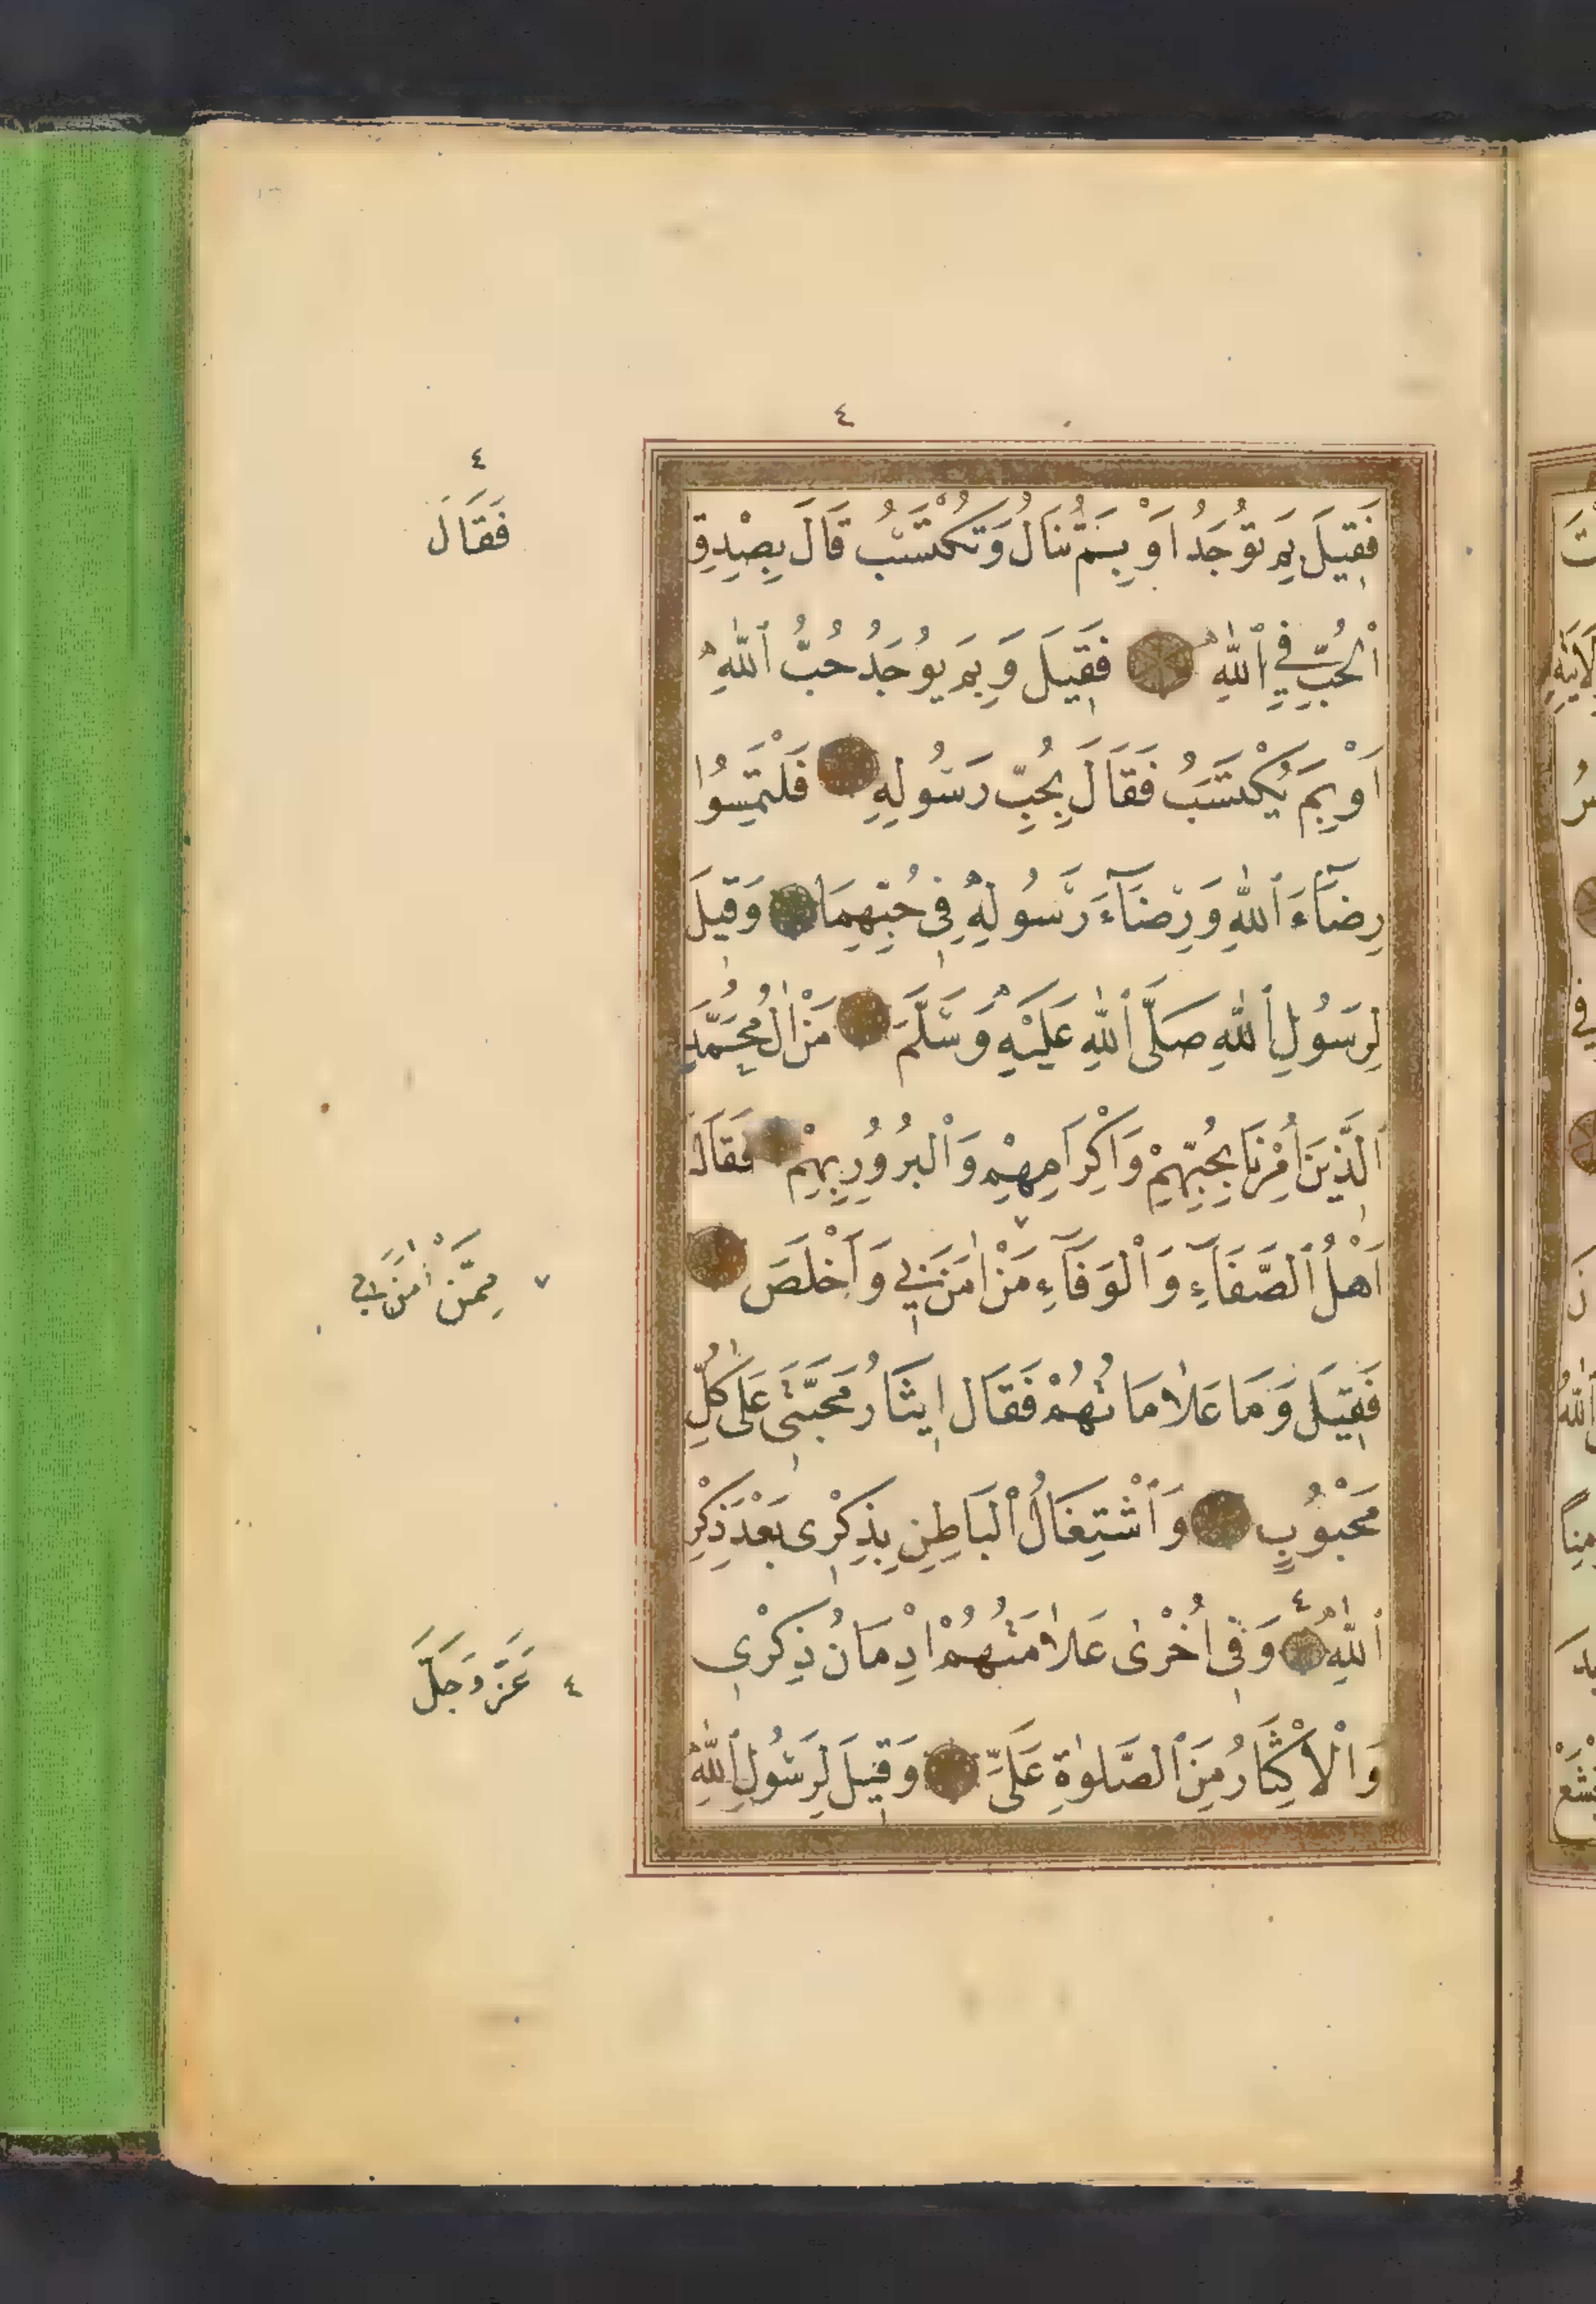 ٤
فَقِيلَ بِمَ تُوجَدُ اَوْ بِمَ تُنَالُ وَتُكْتَسَبُ قَالَ بِصِدْقِ
ٱلْحُبِّ فِي ٱللّٰهِ فَقِيلَ وَبِمَ يُوجَدُ حُبُّ ٱللّٰهِ
اَوْ بِمَ يُكْتَسَبُ فَقَالَ بِحُبِّ رَسُولِهِ فَلْتَمِسُوا
رِضَآءَ ٱللّٰهِ وَرِضَآءَ رَسُولِهِ فِي حُبِّهِمَا وَقِيلَ
لِرَسُولِ ٱللّٰهِ صَلَّى ٱللّٰهِ عَلَيْهِ وَسَلَّمَ مَنْ اٰلُ مُحَمَّدٍ
ٱلَّذِينَ اُمِرْنَا بِحُبِّهِمْ وَاِكْرَامِهِمْ وَٱلْبُرُورِ بِهِمْ فَقَالَ
اَهْلُ ٱلصَّفَآءِ وَٱلْوَفَآءِ مَنْ اٰمَنَ بِي وَاَخْلَصَ
فَقِيلَ وَمَا عَلَامَاتُهُمْ فَقَالَ اِيثَارُ مَحَبَّتِي عَلٰى كُلِّ
مَحْبُوبٍ وَٱشْتِغَالُ ٱلْبَاطِنِ بِذِكْرِى بَعْدَ ذِكْرِ
ٱللّٰهِ ٤ وَفِي اُخْرٰى عَلَامَتُهُمْ اِدْمَانُ ذِكْرِي
وَالْاِكْثَارُ مِنَ ٱلصَّلوٰةِ عَلَىَّ وَقِيلَ لِرَسُولِ ٱللّٰهِ
٤
فَقَالَ
٧ مِمَّنْ اٰمَنَ بِي
٤ عَزَّ وَجَلَّ